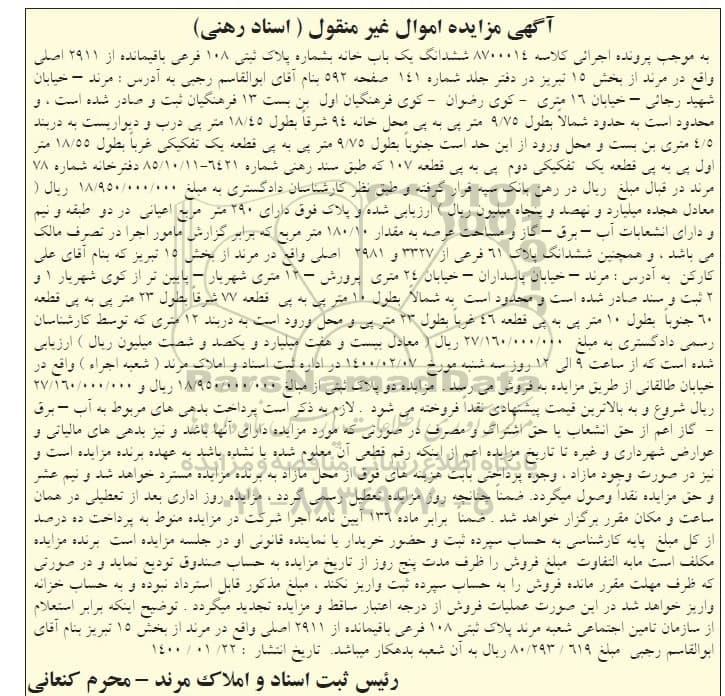 آگهی مزایده اموال غیر منقول ( اسناد رهنی)
به موجب پرونده اجرائی کلاسه ۸۷۰۰۰۱۴ ششدانگ یک باب خانه بشماره پلاک ثبتی ۱۰۸ فرعی باقیمانده از ۲۹۱۱ اصلی
واقع در مرند از بخش ۱۵ تبریز در دفتر جلد شماره ۱۴۱ صفحه ۵۹۲ بنام آقای ابوالقاسم رجبی به آدرس : مرند – خیابان
شهید رجائی – خیابان ۱۶ متری - کوی رضوان - کوی فرهنگیان اول بن بست ۱۳ فرهنگیان ثبت و صادر شده است ، و
محدود است به حدود شمالاً بطول ۹/۷۵ متر پی به پی محل خانه ۹۴ شرقاً بطول ۱۸/۴۵ متر پی درب و دیواریست به دربند
۴/۵ متری بن بست و محل ورود از این حد است جنوباً بطول ۹/۷۵ متر پی به پی قطعه یک تفکیکی غرباً بطول ۱۸/۵۵ متر
اول پی به پی قطعه یک تفکیکی دوم پی به پی قطعه ۱۰۷ که طبق سند رهنی شماره ۶۴۲۱-۸۵/۱۰/۱۱ دفترخانه شماره ۷۸
مرند در قبال مبلغ ریال در رهن بانک سپه قرار گرفته و طبق نظر کارشناسان دادگستری به مبلغ ۱۸/۹۵۰/۰۰۰/۰۰۰ ریال (
معادل هجده میلیارد و نهصد و پنجاه میلیون ریال ) ارزیابی شده و پلاک فوق دارای ۲۹۰ متر مربع اعیانی در دو طبقه و نیم
و دارای انشعابات آب – برق – گاز و مساحت عرصه به مقدار ۱۸۰/۱۰ متر مربع که برابر گزارش مأمور اجرا در تصرف مالک
می باشد ، و همچنین ششدانگ پلاک ۶۱ فرعی از ۳۳۲۷ و ۱۹۸۱ اصلی واقع در مرند از بخش ۱۵ تبریز که بنام آقای علی
کارکن به آدرس : مرند – خیابان پاسداران – خیابان ۲۴ متری پرورش – ۱۲ متری شهریار – پایین تر از کوی شهریار ۱ و
۲ ثبت و سند صادر شده است و محدود است به شمالاً بطول ۱۰ متر پی به پی قطعه ۷۷ شرقاً بطول ۲۳ متر پی به پی قطعه
۶۰ جنوباً بطول ۱۰ متر پی به پی قطعه ۴۶ غرباً بطول ۲۳ متر پی و محل ورود است به دربند ۱۲ متری که توسط کارشناسان
رسمی دادگستری به مبلغ ۲۷/۱۶۰/۰۰۰/۰۰۰ ریال ( معادل بیست و هفت میلیارد و یکصد و شصت میلیون ریال ) ارزیابی
شده است که از ساعت ۹ الی ۱۲ روز سه شنبه مورخ ۱۴۰۰/۰۲/۰۷ در اداره ثبت اسناد و املاک مرند ( شعبه اجراء ) واقع در
خیابان طالقانی از طریق مزایده به فروش می رسد . مزایده دو پلاک ثبتی از مبالغ ۱۸/۹۵۰/۰۰۰/۰۰۰ ریال و ۲۷/۱۶۰/۰۰۰/۰۰۰
ریال شروع و به بالاترین قیمت پیشنهادی نقداً فروخته می شود . لازم به ذکر است پرداخت بدهی های مربوط به آب – برق
- گاز اعم از حق انشعاب یا حق اشتراک و مصرف در صورتی که مورد مزایده دارای آنها باشد و نیز بدهی های مالیاتی و
عوارض شهرداری و غیره تا تاریخ مزایده اعم از اینکه رقم قطعی آن معلوم شده یا نشده باشد به عهده برنده مزایده است و
نیز در صورت وجود مازاد ، وجوه پرداختی بابت هزینه های فوق از محل مازاد به برنده مزایده مسترد خواهد شد و نیم عشر
و حق مزایده نقداً وصول میگردد. ضمناً چنانچه روز مزایده تعطیل رسمی گردد ، مزایده روز اداری بعد از تعطیلی در همان
ساعت و مکان مقرر برگزار خواهد شد . ضمناً برابر ماده ۱۳۶ آیین نامه اجرا شرکت در مزایده منوط به پرداخت ده درصد
از کل مبلغ پایه کارشناسی به حساب سپرده ثبت و حضور خریدار یا نماینده قانونی او در جلسه مزایده است برنده مزایده
مکلف است مابه التفاوت مبلغ فروش را ظرف مدت پنج روز از تاریخ مزایده به حساب صندوق تودیع نماید و در صورتی
که ظرف مهلت مقرر مانده فروش را به حساب سپرده ثبت واریز نکند ، مبلغ مذکور قابل استرداد نبوده و به حساب خزانه
واریز خواهد شد در این صورت عملیات فروش از درجه اعتبار ساقط و مزایده تجدید میگردد . توضیح اینکه برابر استعلام
از سازمان تامین اجتماعی شعبه مرند پلاک ثبتی ۱۰۸ فرعی باقیمانده از ۲۹۱۱ اصلی واقع در مرند از بخش ۱۵ تبریز بنام آقای
ابوالقاسم رجبی مبلغ ۶۱۹ / ۸۰/۲۹۳ ریال به آن شعبه بدهکار میباشد. تاریخ انتشار : ۲۲/ ۰۱ / ۱۴۰۰
رئیس ثبت اسناد و املاک مرند – محرم کنعانی
ParsNamadData
پایگاه اطلاع رسانی مناقصه و مزایده
۰۲۱-۸۸۳۴۹۶۷۰-۵